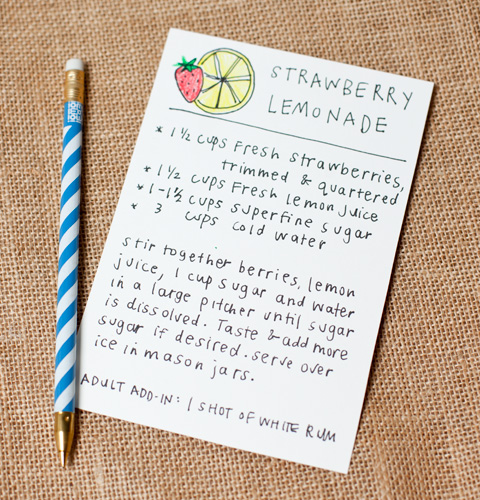 STRAWBERRY
LEMONADE
* 1 1/2 cups fresh strawberries,
trimmed & quartered
* 1 1/2 cups fresh lemon juice
* 1-1 1/2 cups superfine sugar
* 3 cups cold water
stir together berries, lemon
juice, 1 cup sugar and water
in a large pitcher until sugar
is dissolved. Taste & add more
sugar if desired. serve over
ice in mason jars.
ADULT ADD-IN: 1 SHOT OF WHITE RUM